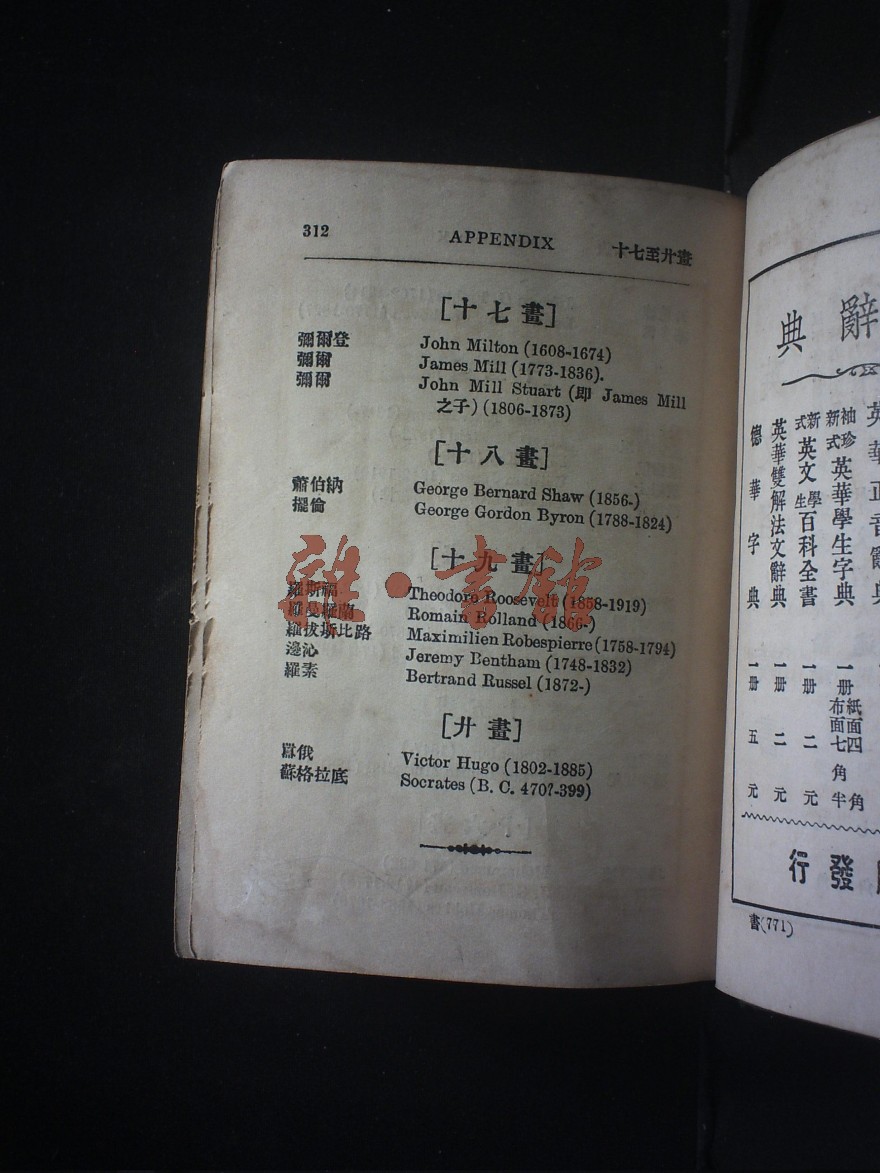 312 APPENDIX 十七至廾畫
[十七畫]
彌爾登 John Milton (1608-1674)
彌爾 James Mill (1773-1836).
彌爾 John Mill Stuart (即 James Mill
之子) (1806-1873)
[十八畫]
蕭伯納 George Bernard Shaw (1856-)
擺倫 George Gordon Byron (1788-1824)
[十九畫]
羅斯福 Theodore Roosevelt (1858-1919)
羅曼羅蘭 Romain Rolland (1866-)
羅拔斯比路 Maximilien Robespierre (1758-1794)
邊沁 Jeremy Bentham (1748-1832)
羅素 Bertrand Russel (1872-)
[廾畫]
囂俄 Victor Hugo (1802-1885)
蘇格拉底 Socrates (B. C. 470?-399)
雜·書館
辭典
英華正音
袖珍新式英華學生字典 一册 紙面四角 布面七角半
新式英文學生百科全書 一册 二元
英華雙解法文辭典 一册 二元
德華字典 一册 五元
發行
書(771)